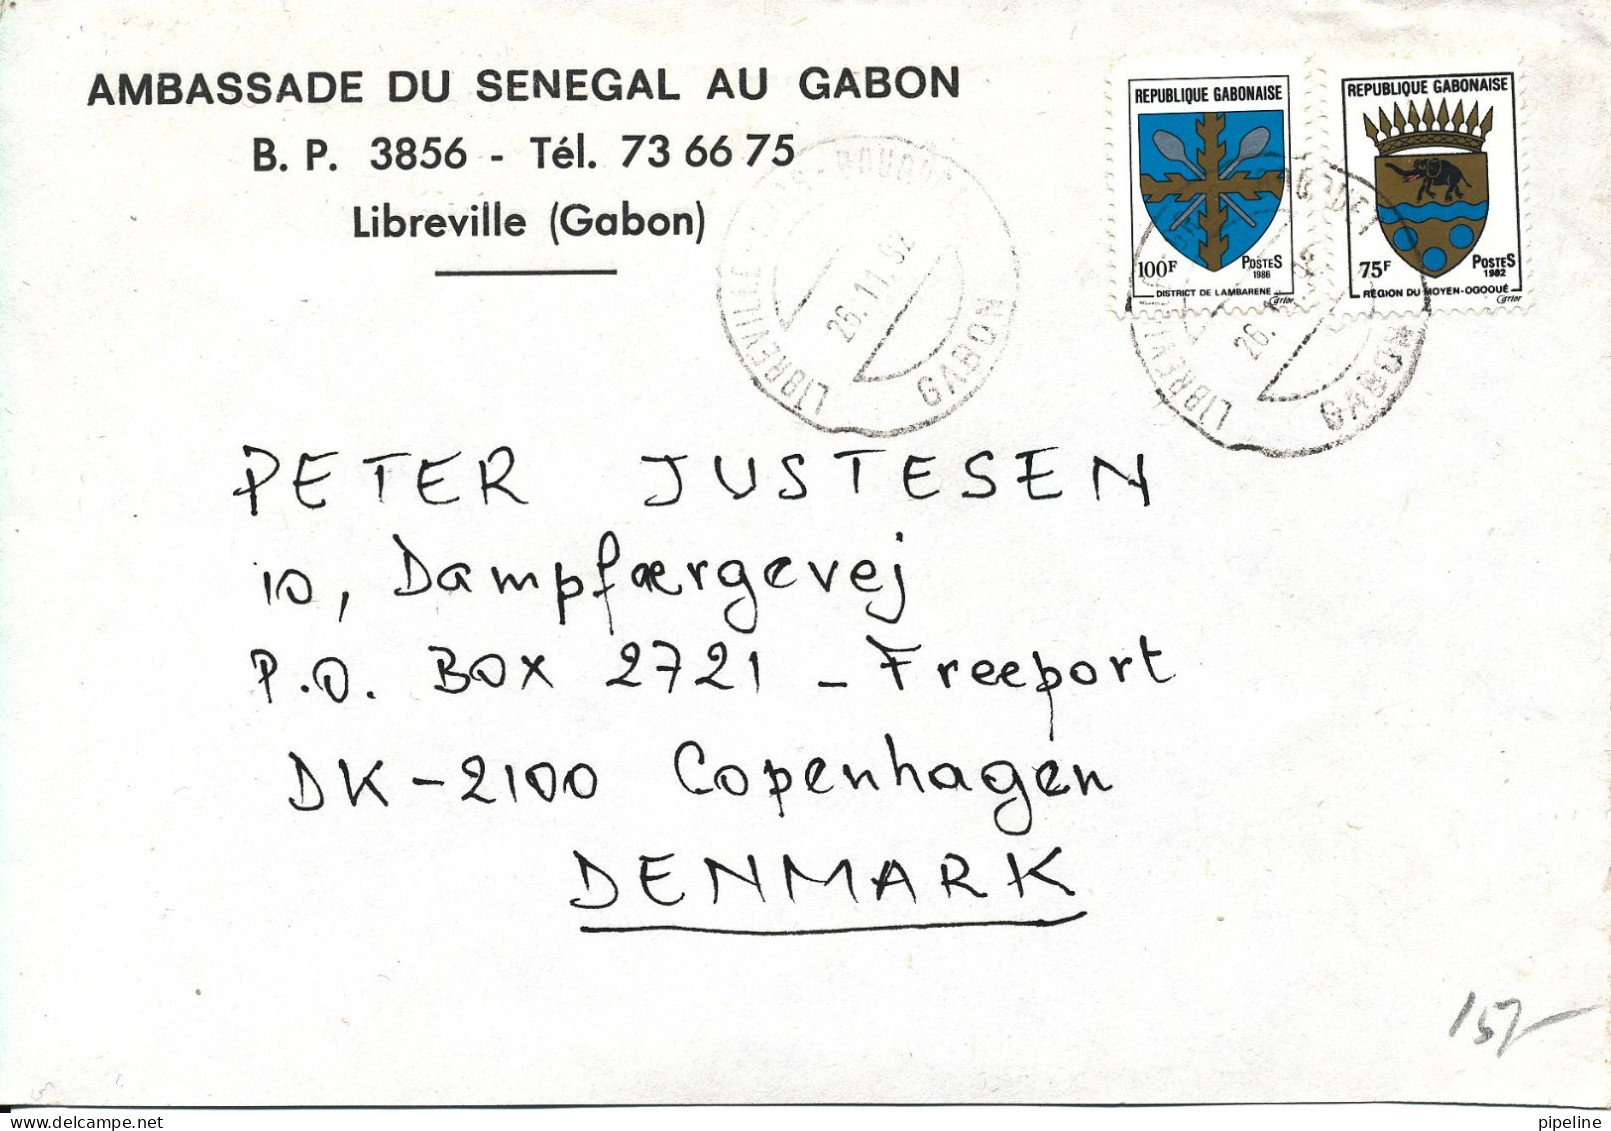 AMBASSADE DU SENEGAL AU GABON
B. P. 3856 - Tél. 73 66 75
Libreville (Gabon)
REPUBLIQUE GABONAISE
100F POSTES
1986
DISTRICT DE LAMBARENE
Carrier
REPUBLIQUE GABONAISE
75F POSTES
1982
RÉGION DU MOYEN-OGOOUÉ
Carrier
LIBREVILLE
26.11.92
GABON
LIBREVILLE
26.
GABON
PETER JUSTESEN
10, Dampfærgevej
P.O. BOX 2721 - Freeport
DK-2100 Copenhagen
DENMARK
pipeline